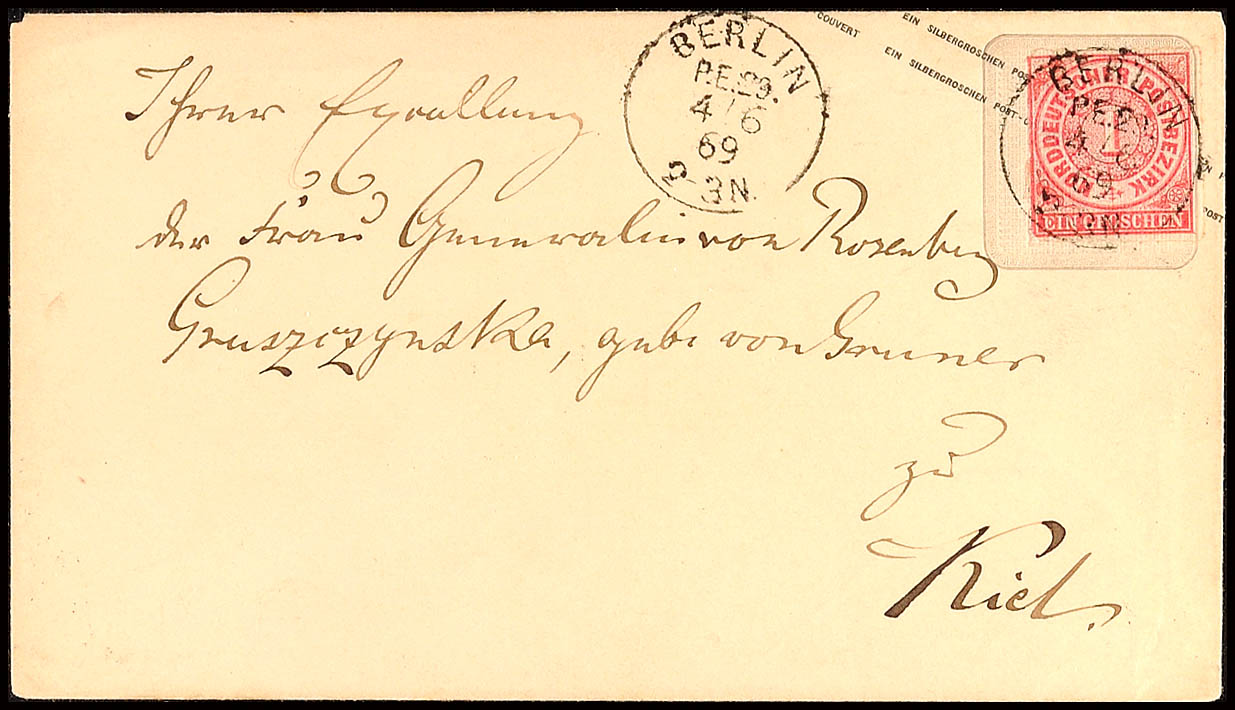 Ihrer Excellenz
der Frau Generalin von Rosenberg
Gruszczynska, geb. von Gruner
zu
Kiel.
BERLIN
P.E.29.
4/6
69
2-3N.
COUVERT
EIN SILBERGROSCHEN POST
EIN SILBERGROSCHEN POST-C
NORDDEUTSCHER POSTBEZIRK
1
EIN GROSCHEN
BERLIN
P.E.
4/6
69
N.
POST